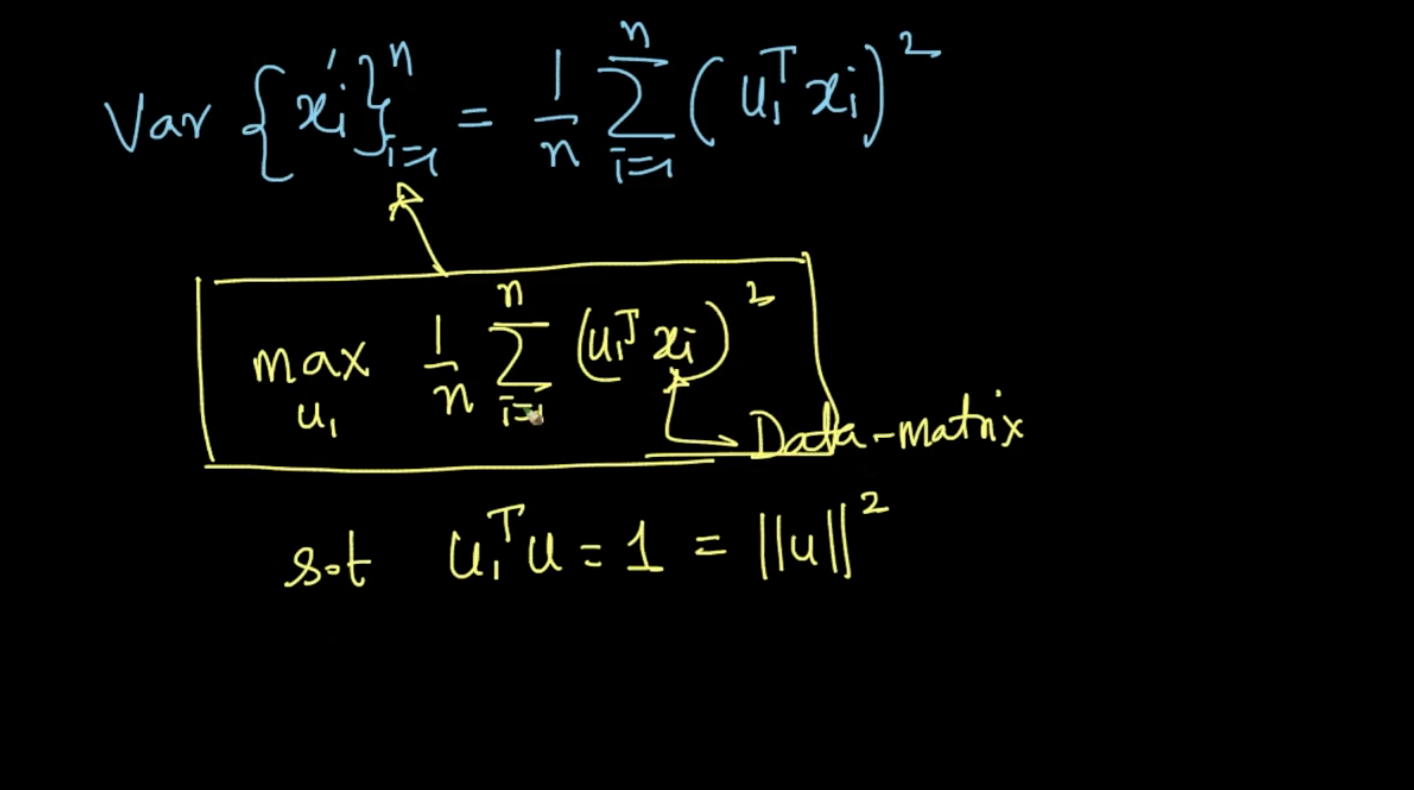 Var {xi'}ⁿi=1 = 1/n Σⁿi=1 (u₁ᵀxi)²
max u₁ 1/n Σⁿi=1 (u₁ᵀxi)²
Data-matrix
s.t u₁ᵀu = 1 = ||u||²